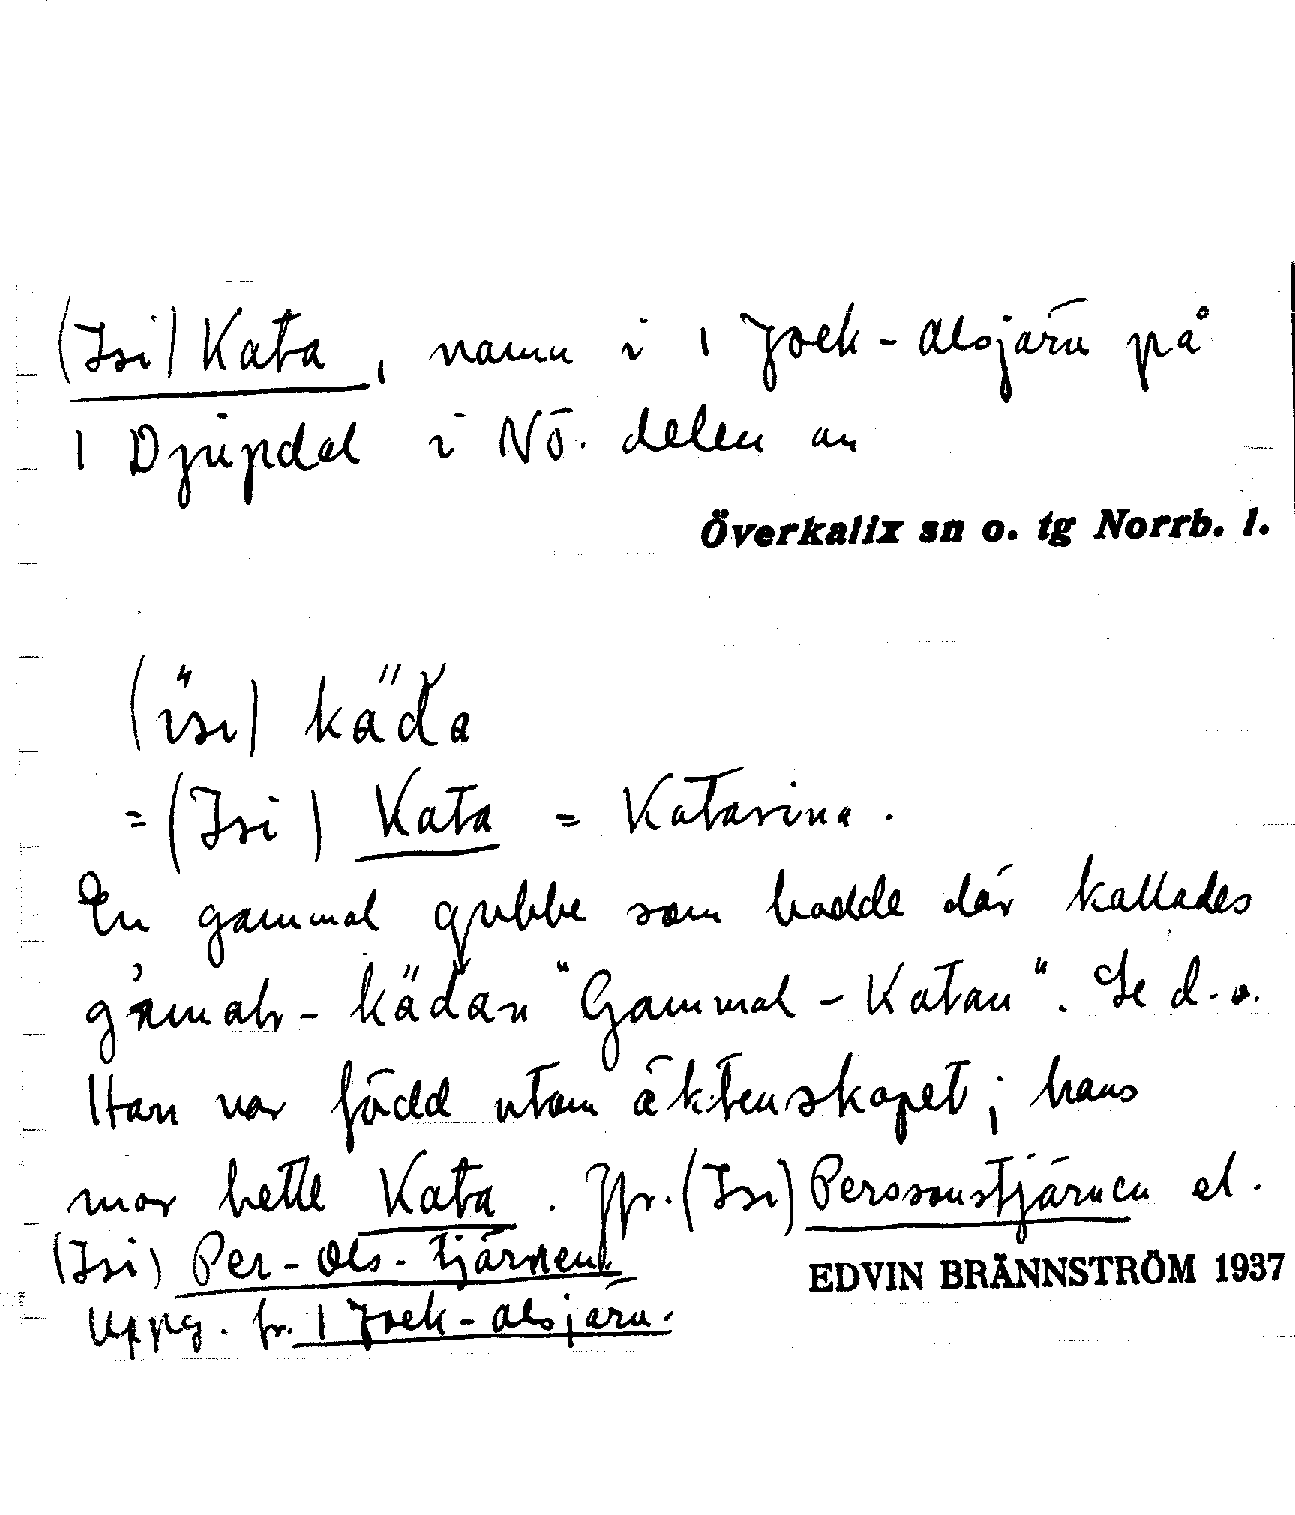 (Isi) Kata, namn i 1 Jock-Olsjärn på
1 Djupdal i NÖ. delen av
Överkalix sn o. tg Norrb. l.
(isi) käda
= (Isi) Kata = Katarina.
En gammal gubbe som bodde där kallades
gamalr-kädan "Gammal-Katan". Se d.o.
Han var född utom äktenskapet; hans
mor hette Kata. Jfr. (Isi) Perssonstjärnen el.
(Isi) Per-Ols-tjärnen.
EDVIN BRÄNNSTRÖM 1937
Uppg. fr. 1 Jock-Olsjärn.